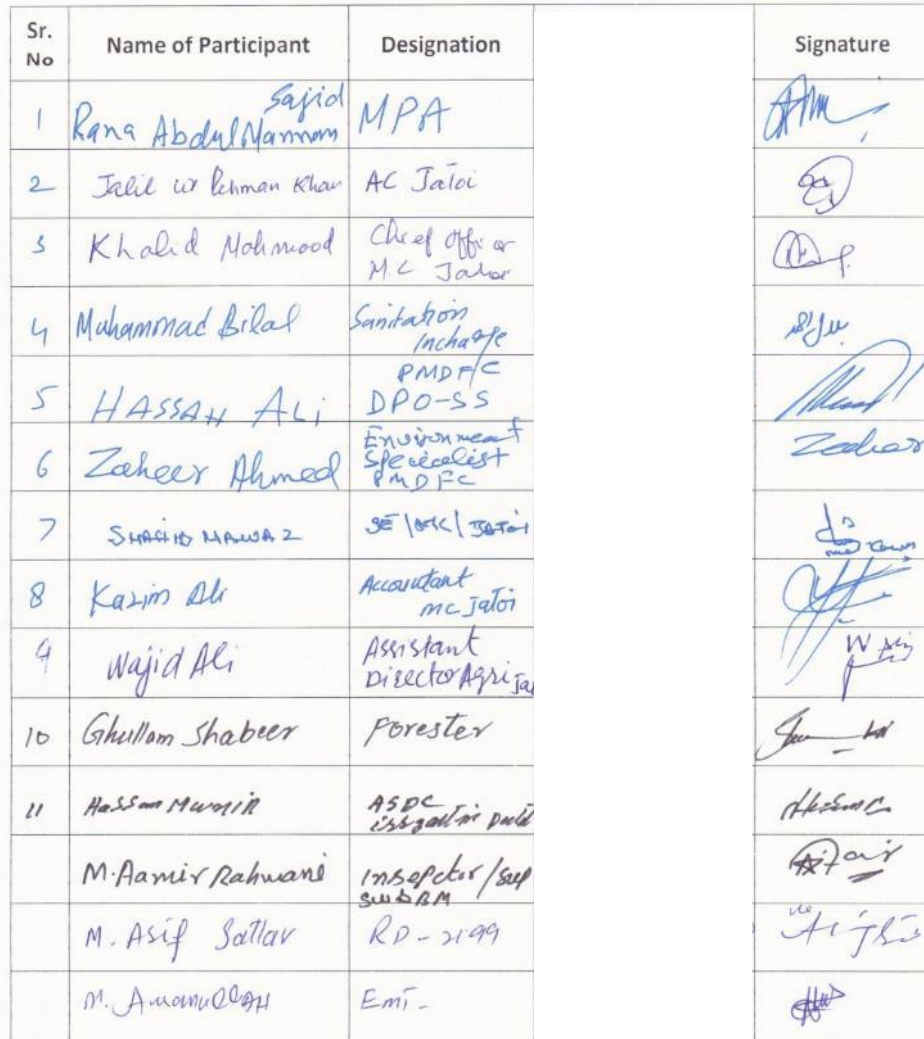 Sr. No
Name of Participant
Designation
Signature
1
Sajid
Rana Abdul Mannan
MPA
2
Jalil ur Rehman Khan
AC Jatoi
3
Khalid Mahmood
Chief Officer
M.C Jatoi
4
Muhammad Bilal
Sanitation
Incharge
5
HASSAN ALi
PMDFC
DPO-SS
6
Zaheer Ahmed
Environment
Specialist
PMDFC
Zaheer
7
SHAHID NAWAZ
JATOI
8
Kazim Ali
Accountant
MC Jatoi
9
Wajid Ali
Assistant
Director Agri
W Ali
10
Ghullam Shabeer
Forester
11
Hassan Munir
ASDC
M. Aamir Rahwani
Insepctor /
M. Asif Sattar
RD - 2199
M. Amanullah